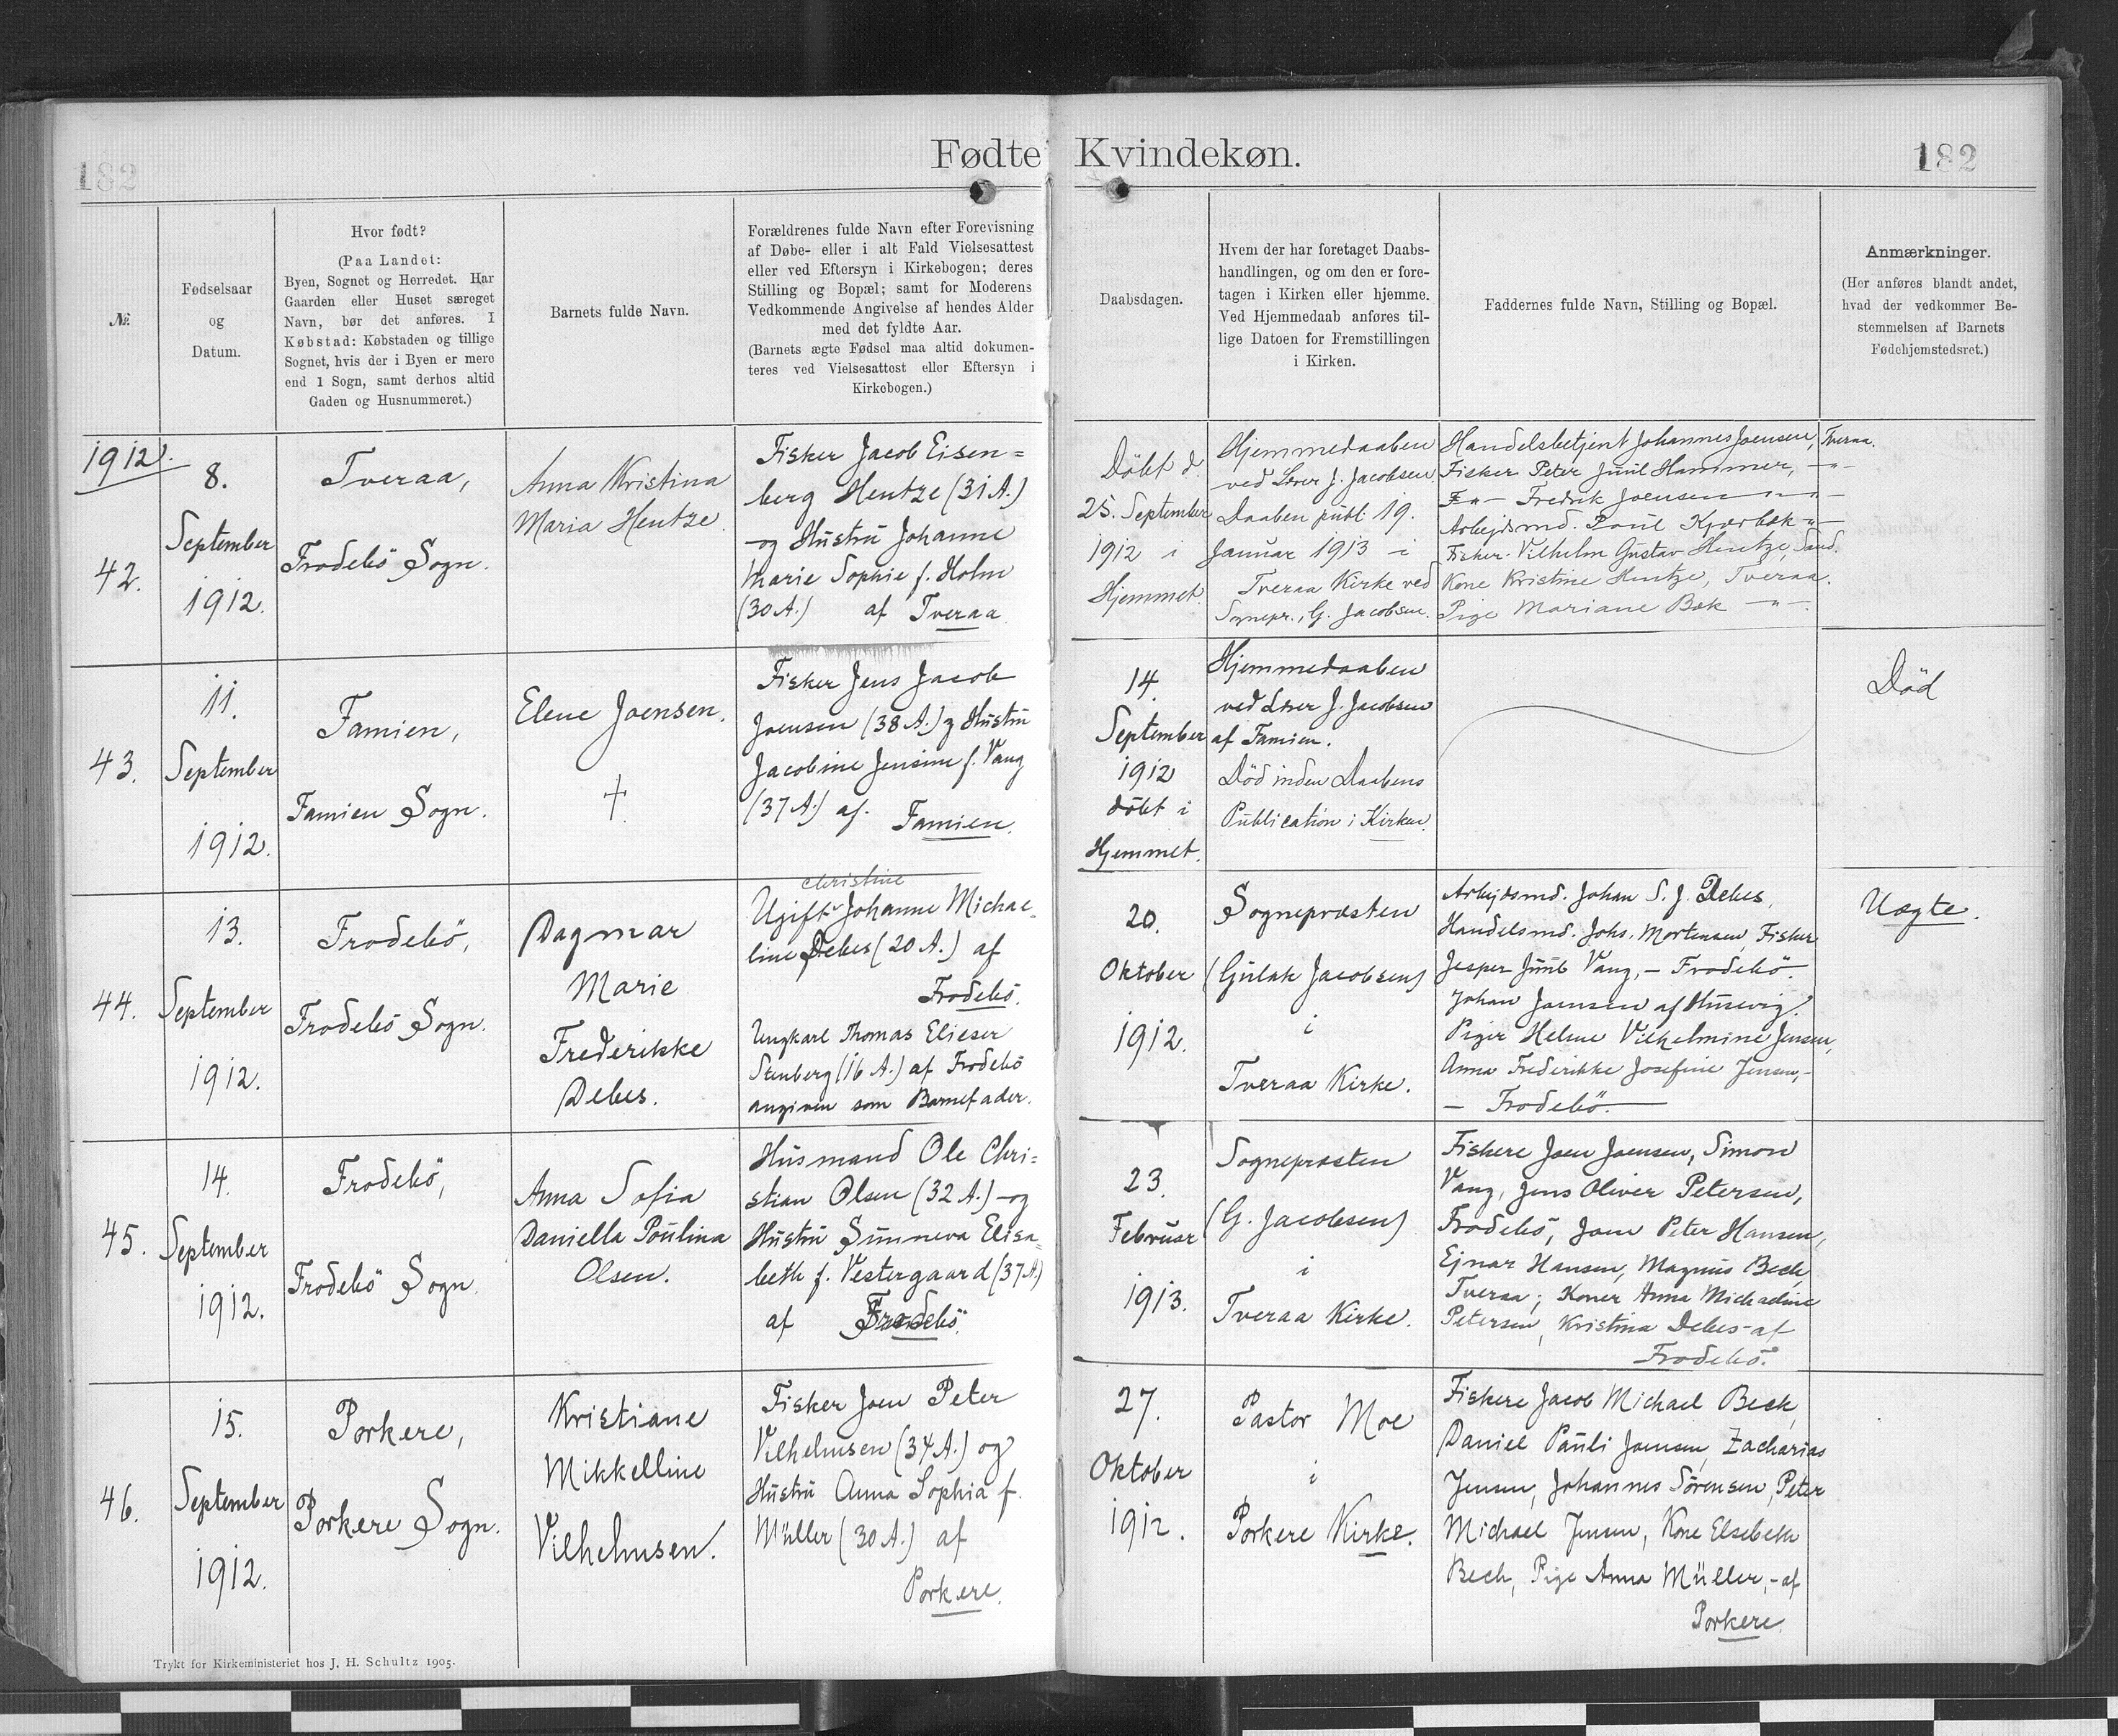 182
Fødte Kvindekøn.
182
№.
Fødselsaar
og
Datum.
Hvor født?
(Paa Landet:
Byen, Sognet og Herredet. Har
Gaarden eller Huset særeget
Navn, bør det anføres. I
Købstad: Købstaden og tillige
Sognet, hvis der i Byen er mere
end 1 Sogn, samt derhos altid
Gaden og Husnummeret.)
Barnets fulde Navn.
Forældrenes fulde Navn efter Forevisning
af Døbe- eller i alt Fald Vielsesattest
eller ved Eftersyn i Kirkebogen; deres
Stilling og Bopæl; samt for Moderens
Vedkommende Angivelse af hendes Alder
med det fyldte Aar.
(Barnets ægte Fødsel maa altid dokumen-
teres ved Vielsesattest eller Eftersyn i
Kirkebogen.)
Daabsdagen.
Hvem der har foretaget Daabs-
handlingen, og om den er fore-
tagen i Kirken eller hjemme.
Ved Hjemmedaab anføres til-
lige Datoen for Fremstillingen
i Kirken.
Faddernes fulde Navn, Stilling og Bopæl.
Anmærkninger.
(Her anføres blandt andet,
hvad der vedkommer Be-
stemmelsen af Barnets
Fødehjemstedsret.)
1912.
42.
8.
September
1912.
Tveraa,
Frodebö Sogn.
Anna Kristina
Maria Hentze.
Fisker Jacob Eisen=
berg Hentze (31 A.)
og Hustru Johanne
Marie Sophie f. Holm
(30 A.) af Tveraa
Döbt d.
25. September
1912 i
Hjemmet.
Hjemmedaaben
ved Lærer J. Jacobsen.
Daaben publ. 19.
Januar 1913 i
Tveraa Kirke ved
Sognepr., G. Jacobsen.
Handelsbetjent Johannes Joensen, Tveraa.
Fisker Peter Juul Hammer, —"—
—"— Fredrik Joensen —"—
Arbejdsmd. Poul Kjærbæk —"—
Fisker Vilhelm Gustav Hentze, Sand.
Kone Kristine Hentze, Tveraa.
Pige Mariane Bæk —"—
43.
11.
September
1912.
Famien,
Famien Sogn.
Elene Joensen.
†
Fisker Jens Jacob
Joensen (38 A.) og Hustru
Jacobine Jensine f. Vang
(37 A.) af
Famien.
14.
September
1912
döbt i
Hjemmet.
Hjemmedaaben
ved Lærer J. Jacobsen
af Famien.
Död inden Daabens
Publication i Kirken.
Död
44.
13.
September
1912.
Frodebö,
Frodebö Sogn.
Dagmar
Marie
Frederikke
Debes.
christine
Ugift Johanne Michae-
line Debes (20 A.) af
Frodebö.
Ungkarl Thomas Elieser
Stenberg (16 A.) af Frodebö
angiven som Barnefader.
20.
Oktober
1912.
Sognepræsten
(Gulak Jacobsen)
i
Tveraa Kirke.
Arbejdsmd. Johan S. J. Debes,
Handelsmd. Johs. Mortensen, Fisker
Jesper Juul Vang, — Frodebö.
Johan Joensen af Husevig.
Piger Helene Vilhelmine Jensen,
Anna Frederikke Josefine Jensen, —
— Frodebö. —
Uægte.
45.
14.
September
1912.
Frodebö,
Frodebö Sogn.
Anna Sofia
Daniella Poulina
Olsen.
Husmand Ole Chri=
stian Olsen (32 A.) og
Hustru Sunneva Elisa=
beth f. Vestergaard (37 A.)
af Frodebö.
23.
Februar
1913.
Sognepræsten
(G. Jacobsen)
i
Tveraa Kirke.
Fiskere Joen Joensen, Simon
Vang, Jens Oliver Petersen,
Frodebö, Joen Peter Hansen,
Ejnar Hansen, Magnus Bech,
Tveraa; Koner Anna Michaeline
Petersen, Kristina Debes af
Frodebö.
46.
15.
September
1912.
Porkere,
Porkere Sogn.
Kristiane
Mikkelline
Vilhelmsen.
Fisker Joen Peter
Vilhelmsen (34 A.) og
Hustru Anna Sophia f.
Müller (30 A.) af
Porkere.
27.
Oktober
1912.
Pastor Moe
i
Porkere Kirke.
Fiskere Jacob Michael Bech,
Daniel Pauli Joensen, Zacharias
Jensen, Johannes Sörensen, Peter
Michael Jensen, Kone Elsebeth
Bech, Pige Anna Müller, - af
Porkere.
Trykt for Kirkeministeriet hos J. H. Schultz 1905.